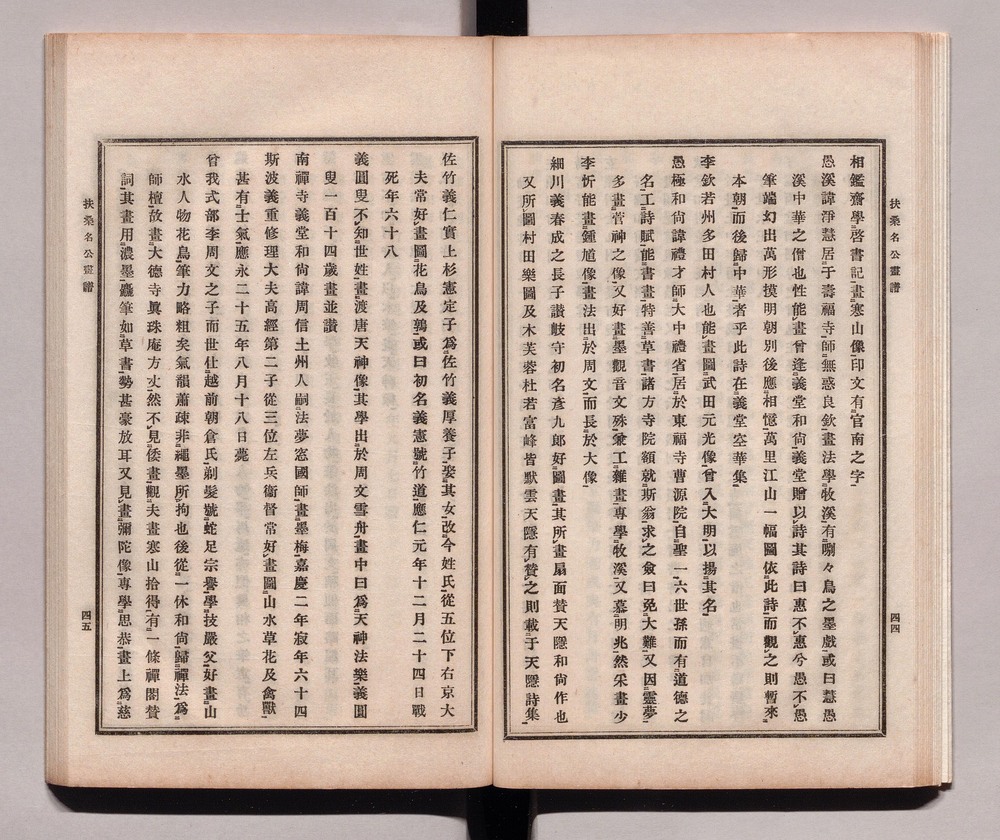 扶桑名公畫譜
四四
相鑑齋學啓書記畫寒山像印文有官南之字
愚溪諱淨慧居于壽福寺師無惑良欽畫法學牧溪有唎々鳥之墨戲或曰慧愚
溪中華之僧也性能畫曾逢義堂和尙義堂贈以詩其詩曰惠不惠兮愚不愚
筆端幻出萬形摸明朝別後應相憶萬里江山一幅圖依此詩而觀之則暫來
本朝而後歸中華者乎此詩在義堂空華集
李欽若州多田村人也能畫圖武田元光像曾入大明以揚其名
愚極和尙諱禮才師大中禮省居於東福寺曹源院自聖一六世孫而有道德之
名工詩賦能書畫特善草書諸方寺院額就斯翁求之僉曰免大難又因靈夢
多畫菅神之像又好畫墨觀音文殊兼工雜畫專學牧溪又慕明兆然采畫少
李忻能畫鍾馗像畫法出於周文而長於大像
細川義春成之長子讃岐守初名彥九郎好圖畫其所畫扇面贊天隱和尙作也
又所圖村田樂圖及木芙蓉杜若富峰皆默雲天隱有贊之則載于天隱詩集
佐竹義仁實上杉憲定子爲佐竹義厚養子娶其女改今姓氏從五位下右京大
夫常好畫圖花鳥及鶉或曰初名義憲號竹道應仁元年十二月二十四日戰
死年六十八
義圓叟不知世姓畫渡唐天神像其學出於周文雪舟畫中曰爲天神法樂義圓
叟一百十四歲畫並讃
南禪寺義堂和尙諱周信土州人嗣法夢窓國師畫墨梅嘉慶二年寂年六十四
斯波義重修理大夫高經第二子從三位左兵衞督常好畫圖山水草花及禽獸
甚有士氣應永二十五年八月十八日薨
曾我式部李周文之子而世仕越前朝倉氏剃髮號蛇足宗譽學技嚴父好畫山
水人物花鳥筆力略粗矣氣韻蕭疎非繩墨所拘也後從一休和尙歸禪法爲
師檀故畫大德寺眞珠庵方丈然不見倭畫觀夫畫寒山拾得有一條禪閤贊
詞其畫用濃墨麤筆如草書勢甚豪放耳又見畫彌陀像專學思恭畫上爲慈
扶桑名公畫譜
四五